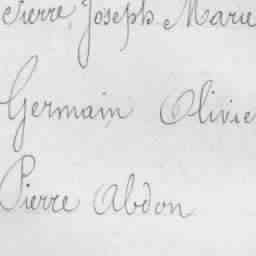 Pierre Joseph Marie
Germain Olivie
Pierre Abdon